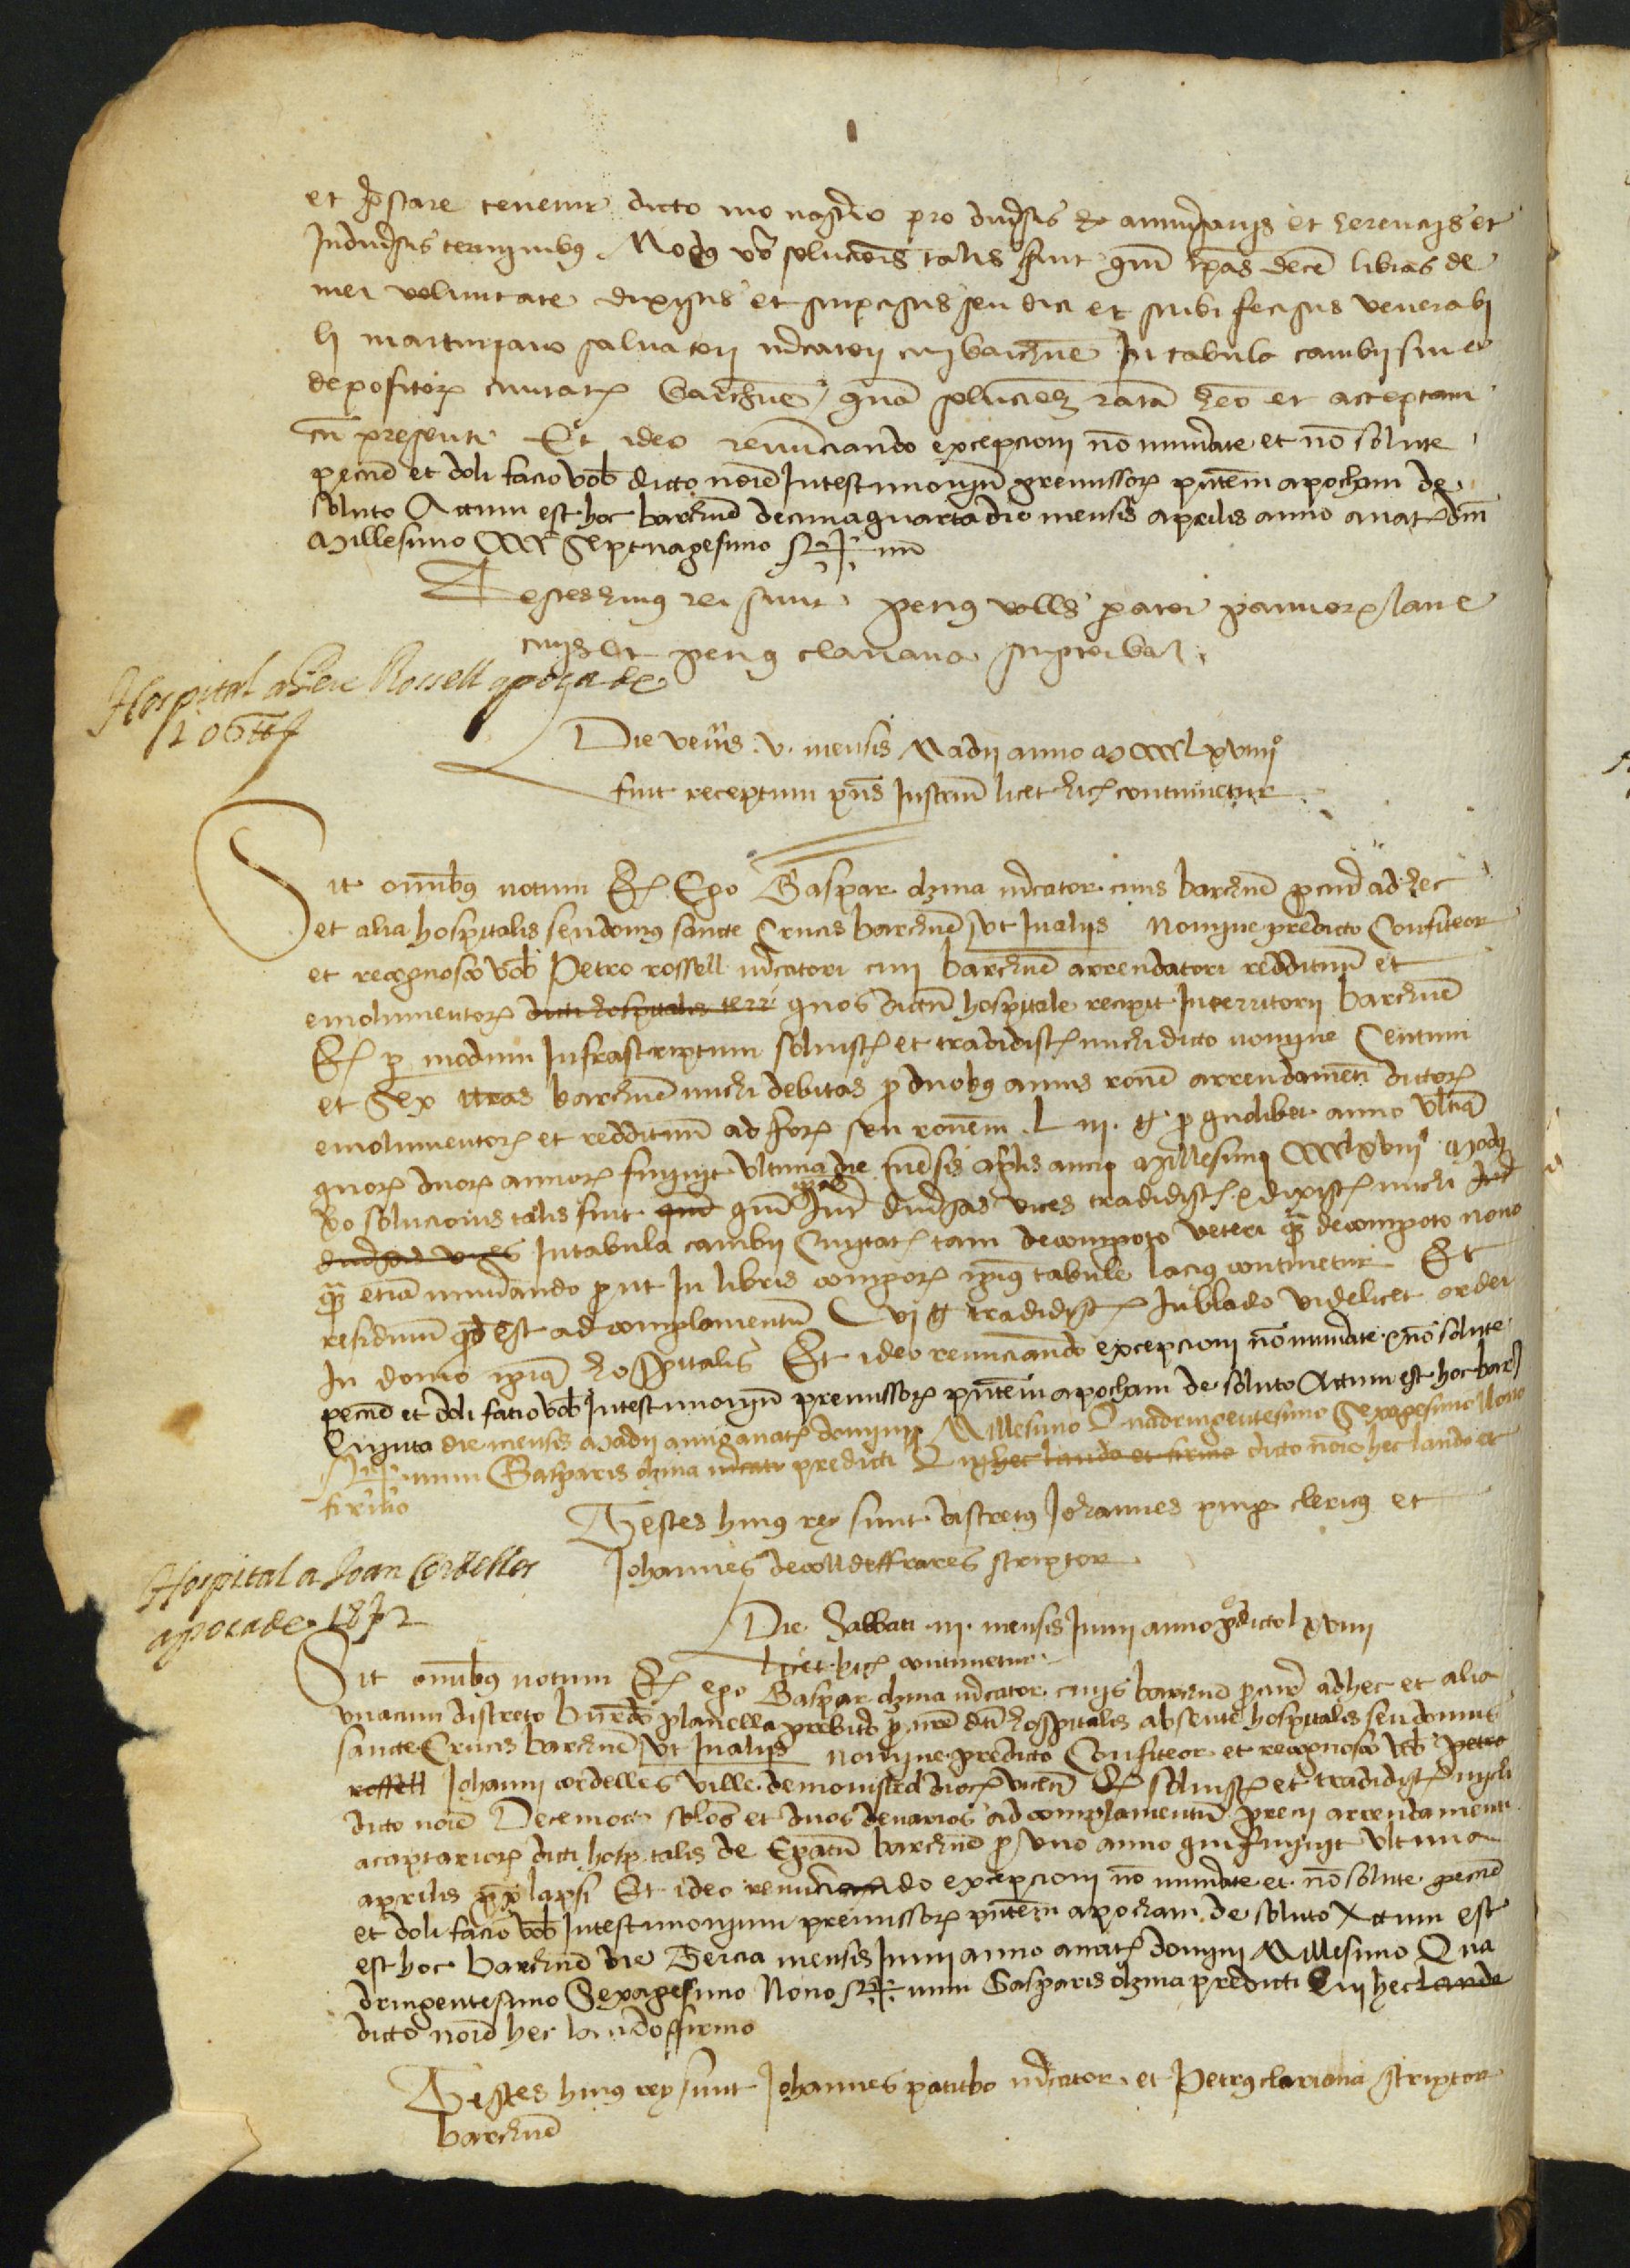 et prestare tenemr dicto monasterio pro diversis de anniversariis et herenciis et
Indiversis terminibus. Modus vero soluciois talis fuit qm ipsas decem libras de
mei voluntate dixistis et scripsistis seu dici et scribi fecistis venerabi
li martiriano salvatori mercatori civi barchne In tabula cambii sive
depositorum civitatis barchne / quam solucioem ratam heo et acceptam
cu presenti Et ideo renunciando excepcioni no numerate et no solute
pecunie et doli facio vob dicto noie Intestimonium premissorum pntem apocham de
soluto Actum est hoc barchne decimaquarta die mensis aprilis anno a nat dni
Millesimo CCCC Septuagesimo Sig num
Testes huius rei sunt petrus volls parator pannorum lane
civis et petrus clariana scriptor bar
Hospital a Pere Rossell apoca de
106 ℔
Die venis .v. mensis Madii anno MCCCClxviiii
fuit receptum pns Instrum licet hic continuetur
Sit omnibus notum Q Ego Gaspar dzina mercator civis barchne procurator ad hec
et alia hospitalis seu domus sancte Crucis barchne ut Inaliis Nomine predicto Confiteor
et recognosco vob Petro rossell mercatori civi barchne arrendatori reddituum et
emolumentorum dicti hospitalis terri quos dictum hospitale recipit In territorii barchne
Q per modum Infrascriptum solvistis et tradidistis michi dicto nomine Centum
et Sex libras barchne michi debitas pro duobus annis rone arrendamenti dictorum
emolumentorum et reddituum ad forum seu ronem L iii ℔ pro quolibet anno ultra
quorum duorum annorum finivit ultima die mensis aplis anno Millesimo CCCClxviiii Modus
vo solucionis talis fuit quia qm Inter diversas vices tradidistis et dixistis michi Inter
diversas vices Intabula cambii Civitatis tam de compoto veteri quam de compoto novo
quam etiam numerando prout In libris compotorum ipius tabule lacius continetur Et
residuum quod est ad complementum C vi ℔ tradidistis In blado videlicet ordei
In domo ipius hospitalis Et ideo renunciando excepcioni no numerate et no solute
pecunie et doli facio vob Intestimonium premissorum pntem apocham de soluto Actum est hoc bar
Quinta die mensis Madii anni a nat domini Millesimo Quadringentesimo Sexagesimo Nono
Sig num Gasparis dzina mercatoris predicti Qui hec laudo et firmo dicto noie hec laudo et
firmo
Testes huius rey sunt discretus Johannes puig clericus et
Johannes de coll deffrares scriptor
Hospital a Joan Cordelles
apoca de 18 ſ 2
Die Sabbati .iii. mensis Junii anno predicto lxviiii
licet hic continuetur
Sit omnibus notum Q ego Gaspar dzina mercator civis barchne procurator ad hec et alia
unacum discreto bnardo planella prebitero procuratore dti hospitalis absente hospitalis seu domus
sancte Crucis barchne ut Inaliis nomine predicto Confiteor et recognosco vob Petro
rossell Johanni cordelles ville de monistrol dioc vicen Q solvistis et tradidistis michi
dicto noie Decemocto solidos et duos denarios ad complementum precii arrendamenti
acaptariorum dicti hospitalis de Epatu barchne pro uno anno qui finivit ultima
aprilis pproxime lapsi Et ideo renunciando excepcioni no numerate et no solute pecunie
et doli facio vob Intestimonium premissorum pntem apocham de soluto Actum est
est hoc barchne die Tercia mensis Junii anno a nat domini Millesimo Qua
dringentesimo Sexagesimo Nono Sig num Gasparis dzina predicti Qui hec laudo
dicto noie hec laudo firmo
Testes huius rey sunt Johannes patitbo mercator et Petrus clariana scriptor
barchne